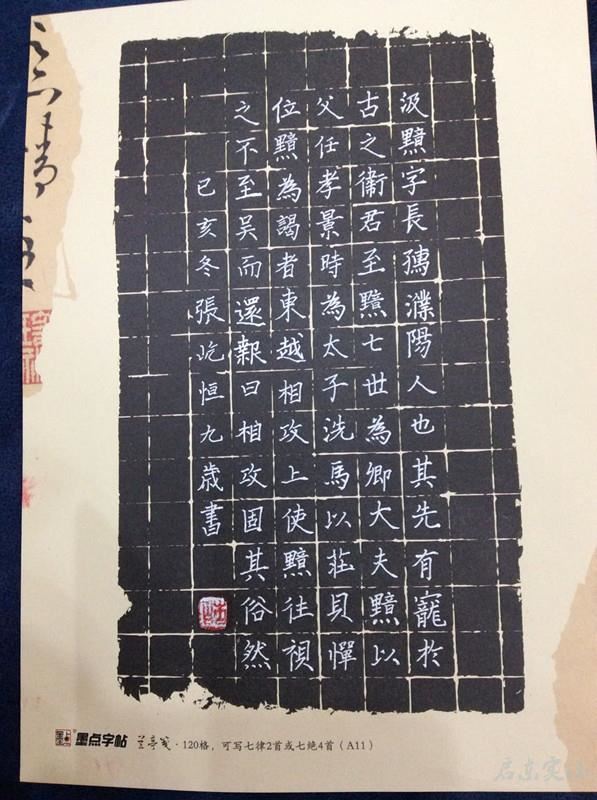 汲黯字長孺濮陽人也其先有寵於
古之衛君至黯七世為卿大夫黯以
父任孝景時為太子洗馬以莊貝憚
位黯為謁者東越相攻上使黯往視
之不至吳而還報曰相攻固其俗然
己亥冬張屹恒九歲書
墨点字帖 兰亭笺·120格，可写七律2首或七绝4首（A11）
启东实小